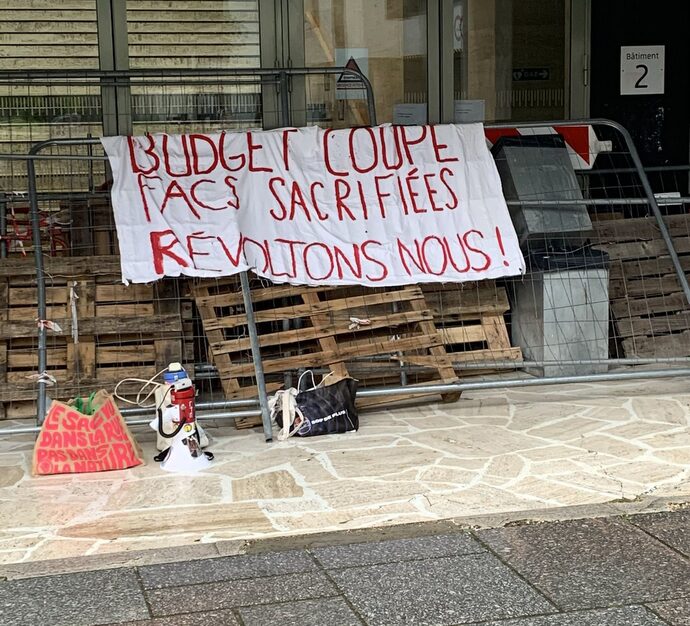 Bâtiment
2
BUDGET COUPE
FACS SACRIFIÉES
RÉVOLTONS NOUS !
LE SAC
DANS LA MAIN
PAS DANS
LA NATURE